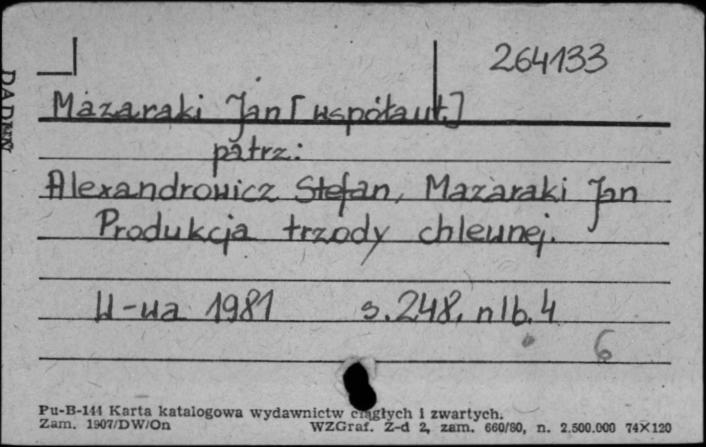 264133
Mazaraki Jan [współaut.]
patrz:
Alexandrowicz Stefan, Mazaraki Jan
Produkcja trzody chlewnej.
W-wa 1981 s. 248, nlb. 4
6
Pu-B-144 Karta katalogowa wydawnictw ciągłych i zwartych.
Zam. 1907/DW/On WZGraf. Z-d 2, zam. 660/80, n. 2.500.000 74×120